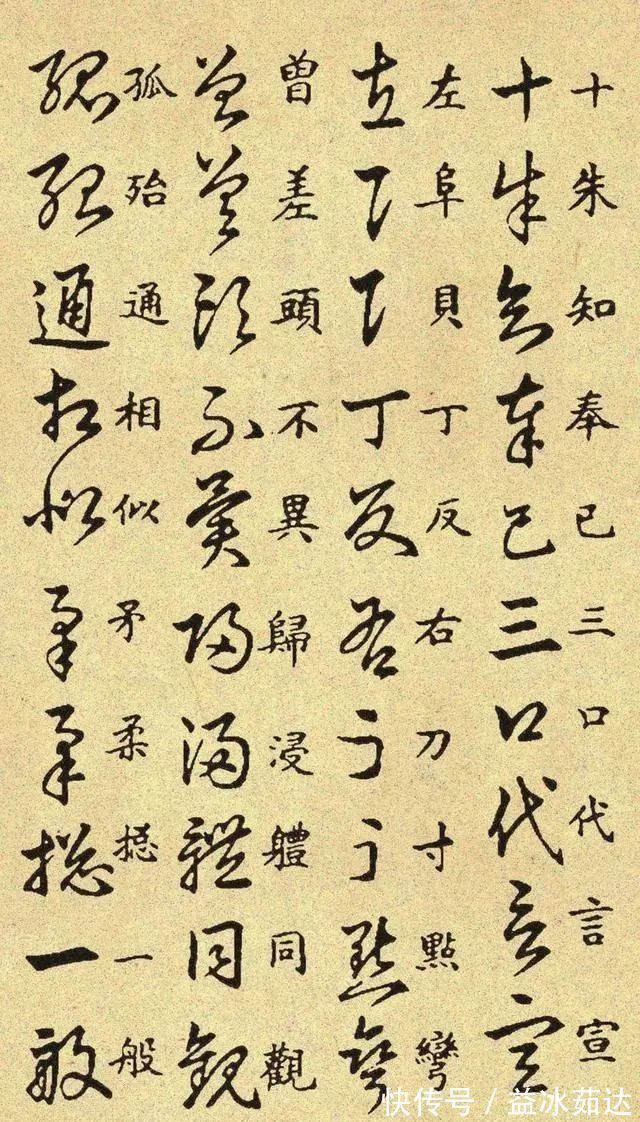 十朱知奉已三口代言宣
十朱知奉已三口代言宣
左阜貝丁反右刀寸點彎
左阜貝丁反右刀寸點彎
曽差頭不異歸浸體同觀
曽差頭不異歸浸體同觀
孤殆通相似矛柔揔一般
孤殆通相似矛柔揔一般
快传号／益冰茹达